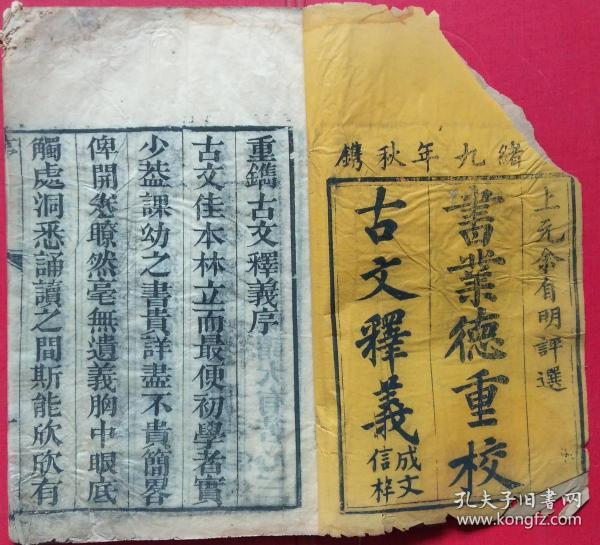 緒九年秋鐫
上元余自明評選
書業德重校
古文釋義
成文
信梓
重鐫古文釋義序
古文佳本林立而最便初學者實
少葢課幼之書貴詳盡不貴簡畧
俾開卷瞭然毫無遺義胸中眼底
觸處洞悉誦讀之間斯能欣欣有
孔夫子旧书网
www.kongfz.com